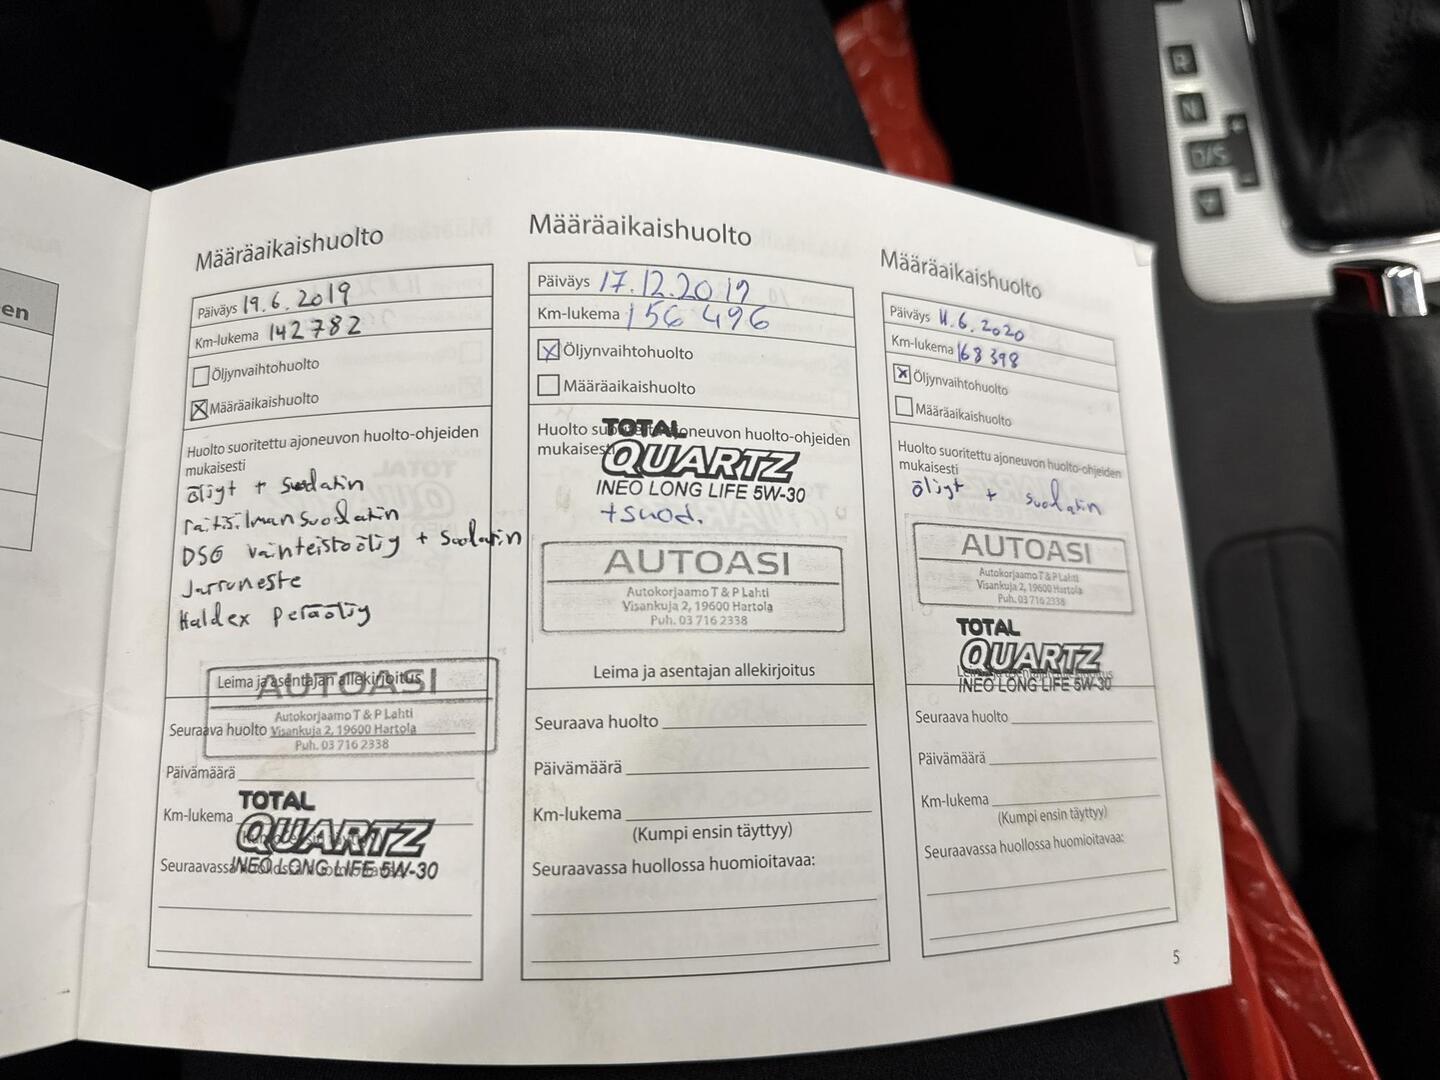 en
Määräaikaishuolto
Päiväys 19.6.2019
Km-lukema 142 782
Öljynvaihtohuolto
Määräaikaishuolto
Huolto suoritettu ajoneuvon huolto-ohjeiden
mukaisesti
öljyt + suodatin
raitisilmansuodatin
DSG vaihteistoöljy + suodatin
Jarruneste
Haldex peräöljy
Leima ja asentajan allekirjoitus
AUTOASI
Autokorjaamo T & P Lahti
Seuraava huolto
Visankuja 2, 19600 Hartola
Puh. 03 716 2338
Päivämäärä
Km-lukema
TOTAL
QUARTZ
INEO LONG LIFE 5W-30
Määräaikaishuolto
Päiväys 17.12.2019
Km-lukema 156 496
Öljynvaihtohuolto
Määräaikaishuolto
Huolto ajoneuvon huolto-ohjeiden
mukaisesti
TOTAL
QUARTZ
INEO LONG LIFE 5W-30
+ suod.
AUTOASI
Autokorjaamo T & P Lahti
Visankuja 2, 19600 Hartola
Puh. 03 716 2338
Leima ja asentajan allekirjoitus
Seuraava huolto
Päivämäärä
Km-lukema
(Kumpi ensin täyttyy)
Seuraavassa huollossa huomioitavaa:
Määräaikaishuolto
Päiväys 11.6.2020
Km-lukema 168 398
Öljynvaihtohuolto
Määräaikaishuolto
Huolto suoritettu ajoneuvon huolto-ohjeiden
mukaisesti
öljyt + suodatin
AUTOASI
Autokorjaamo T & P Lahti
Visankuja 2, 19600 Hartola
Puh. 03 716 2338
TOTAL
QUARTZ
INEO LONG LIFE 5W-30
Seuraava huolto
Päivämäärä
Km-lukema
(Kumpi ensin täyttyy)
Seuraavassa huollossa huomioitavaa:
5
R
N
D/S
+
-